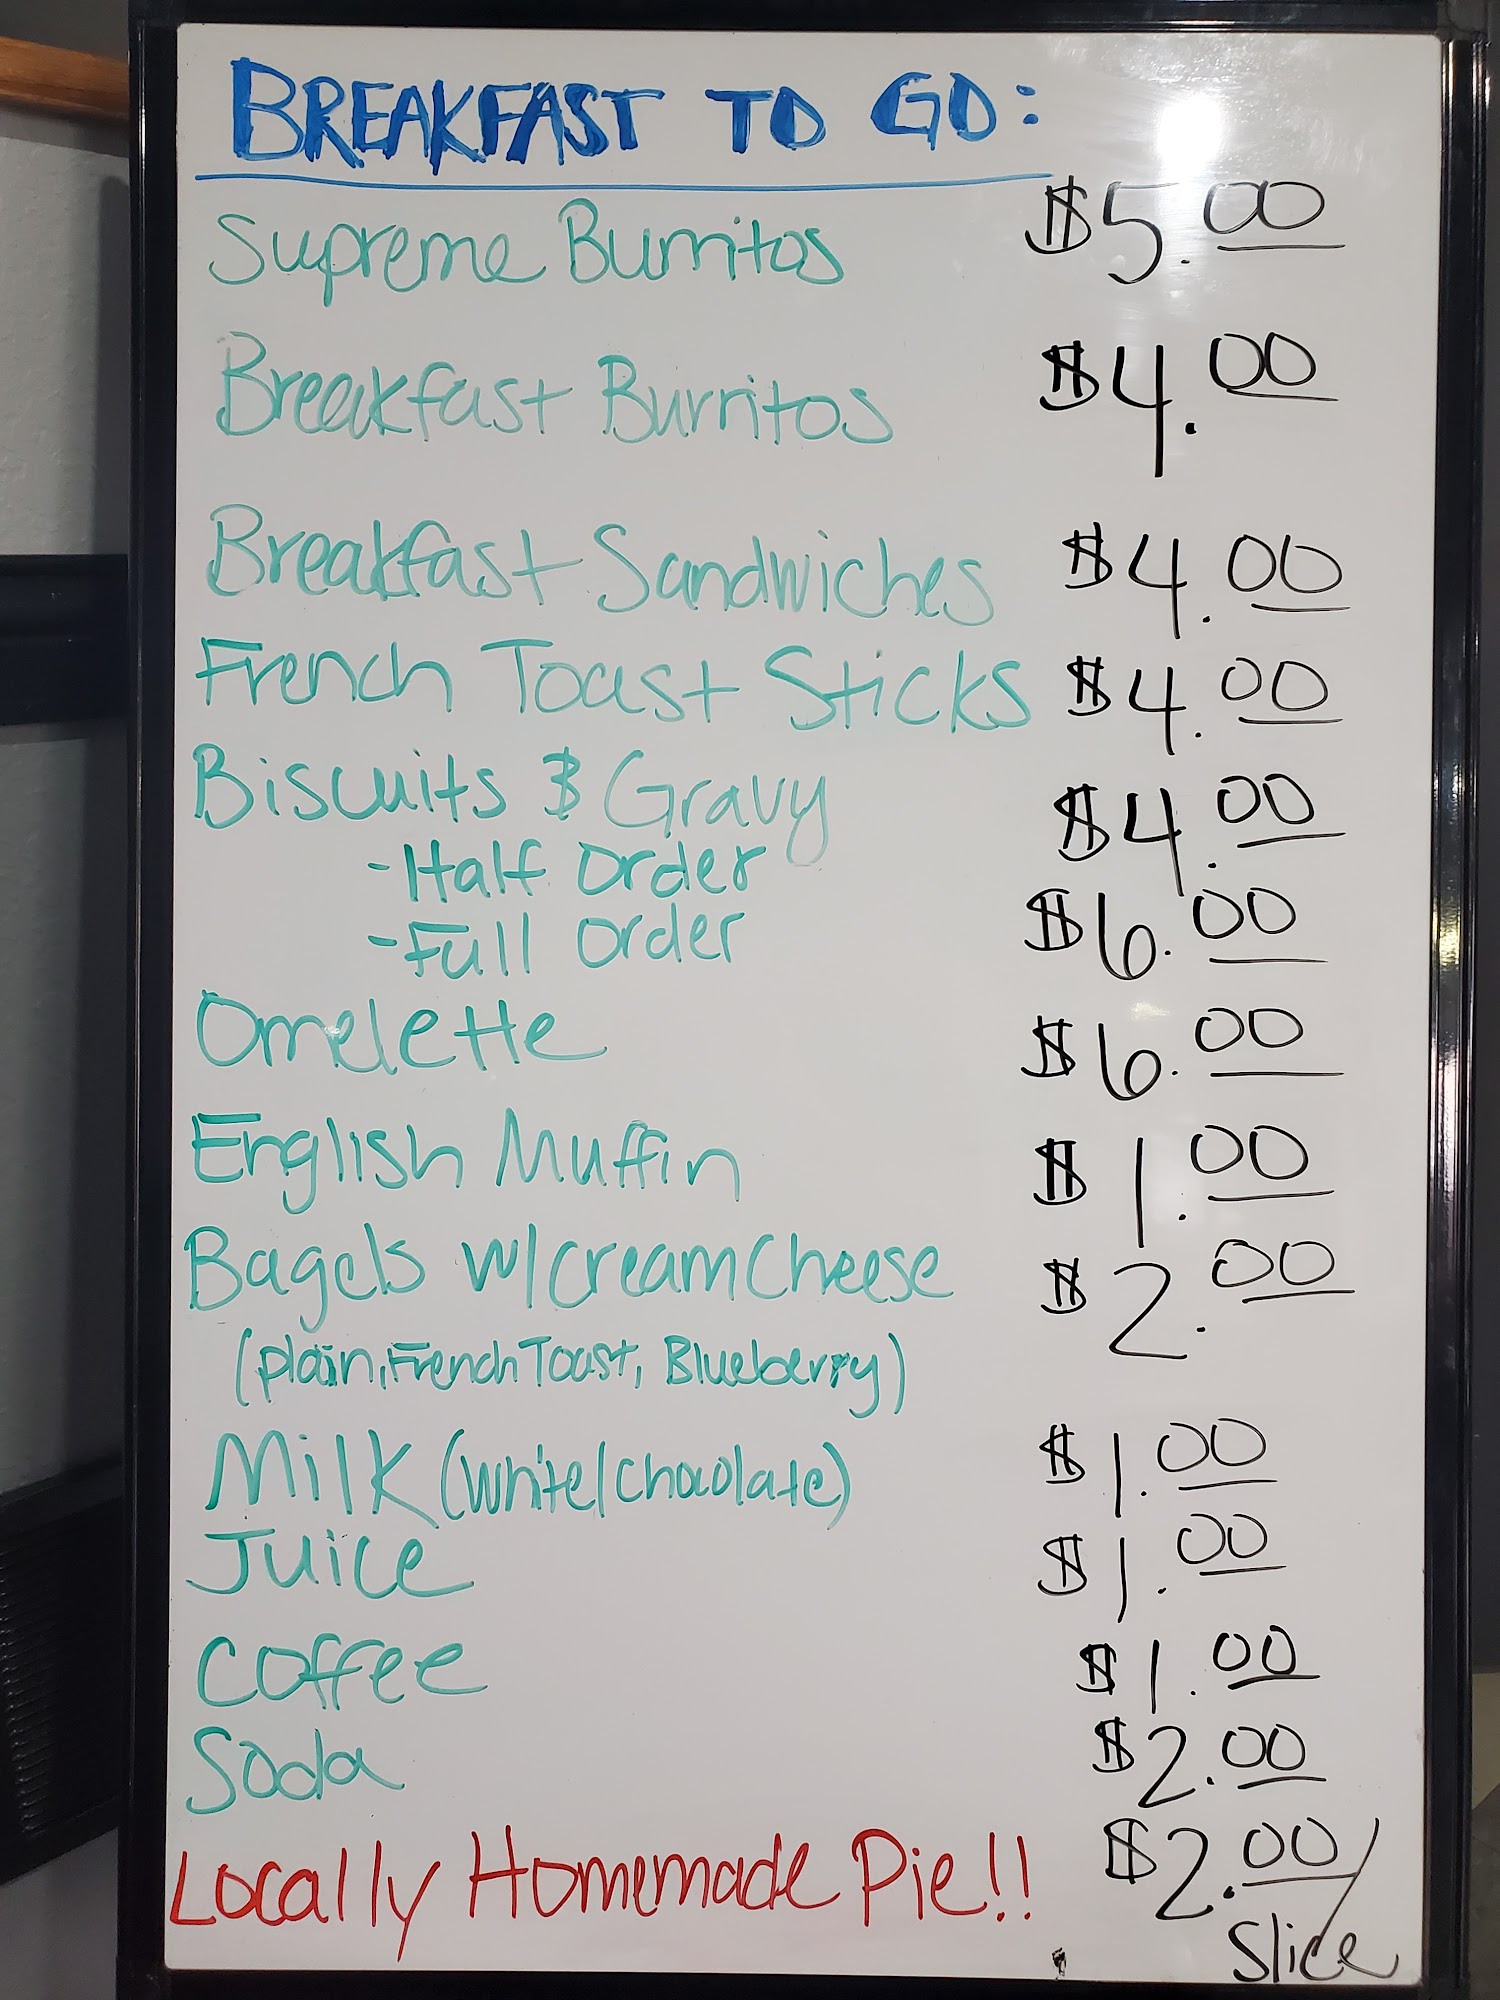 BREAKFAST TO GO:
Supreme Burritos $5.00
Breakfast Burritos $4.00
Breakfast Sandwiches $4.00
French Toast Sticks $4.00
Biscuits & Gravy
-Half Order $4.00
-Full Order $6.00
Omelette $6.00
English Muffin $1.00
Bagels w/creamcheese $2.00
(plain, French Toast, Blueberry)
Milk (white/chocolate) $1.00
Juice $1.00
Coffee $1.00
Soda $2.00
Locally Homemade Pie!! $2.00/
Slice